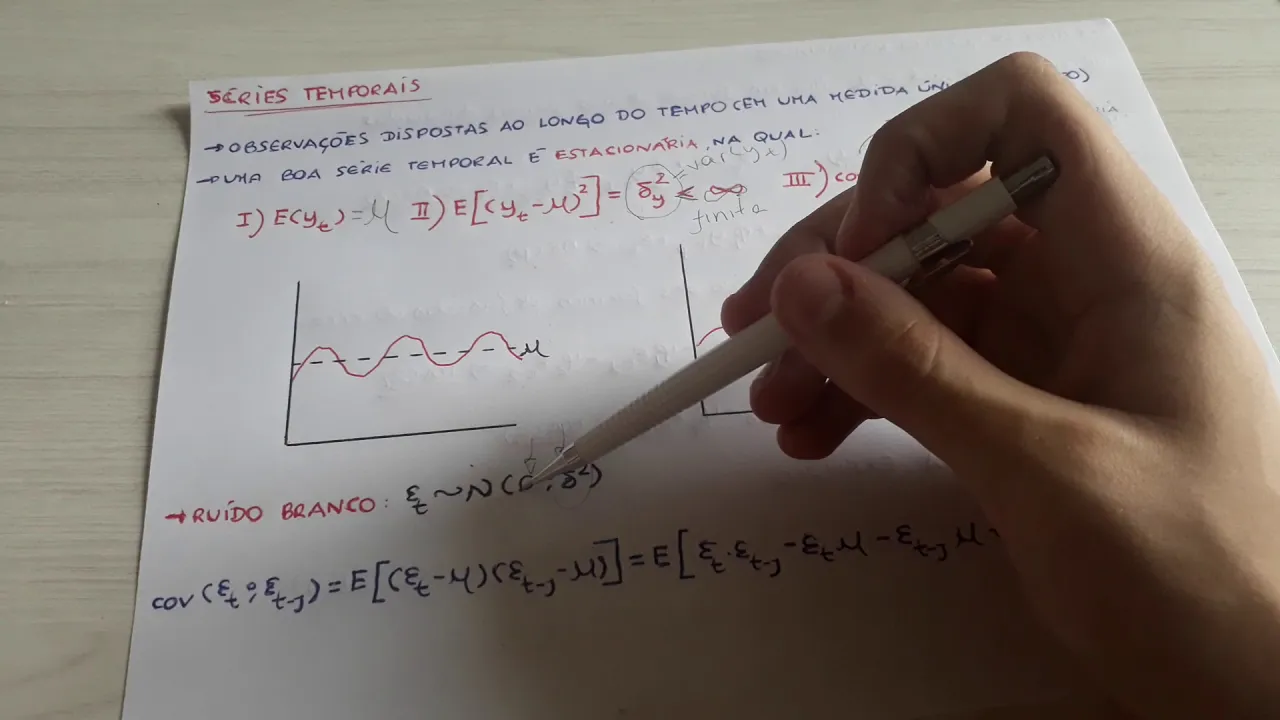 SÉRIES TEMPORAIS
→ OBSERVAÇÕES DISPOSTAS AO LONGO DO TEMPO (EM UMA MEDIDA
→ UMA BOA SÉRIE TEMPORAL É ESTACIONÁRIA, NA QUAL:
I) E(y_t) = μ II) E[(y_t - μ)²] = σ²_y < ∞ III)
= var(y_t)
finita
μ
→ RUÍDO BRANCO: ε_t ~ N( , σ²)
COV (ε_t ; ε_{t-j}) = E[(ε_t - μ)(ε_{t-j} - μ)] = E[ε_t · ε_{t-j} - ε_t μ - ε_{t-j} μ